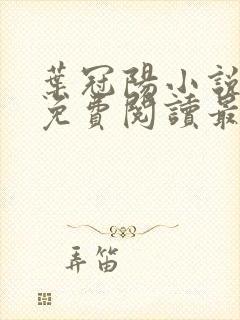 葉冠陽小說
免費閱讀最
弄笛